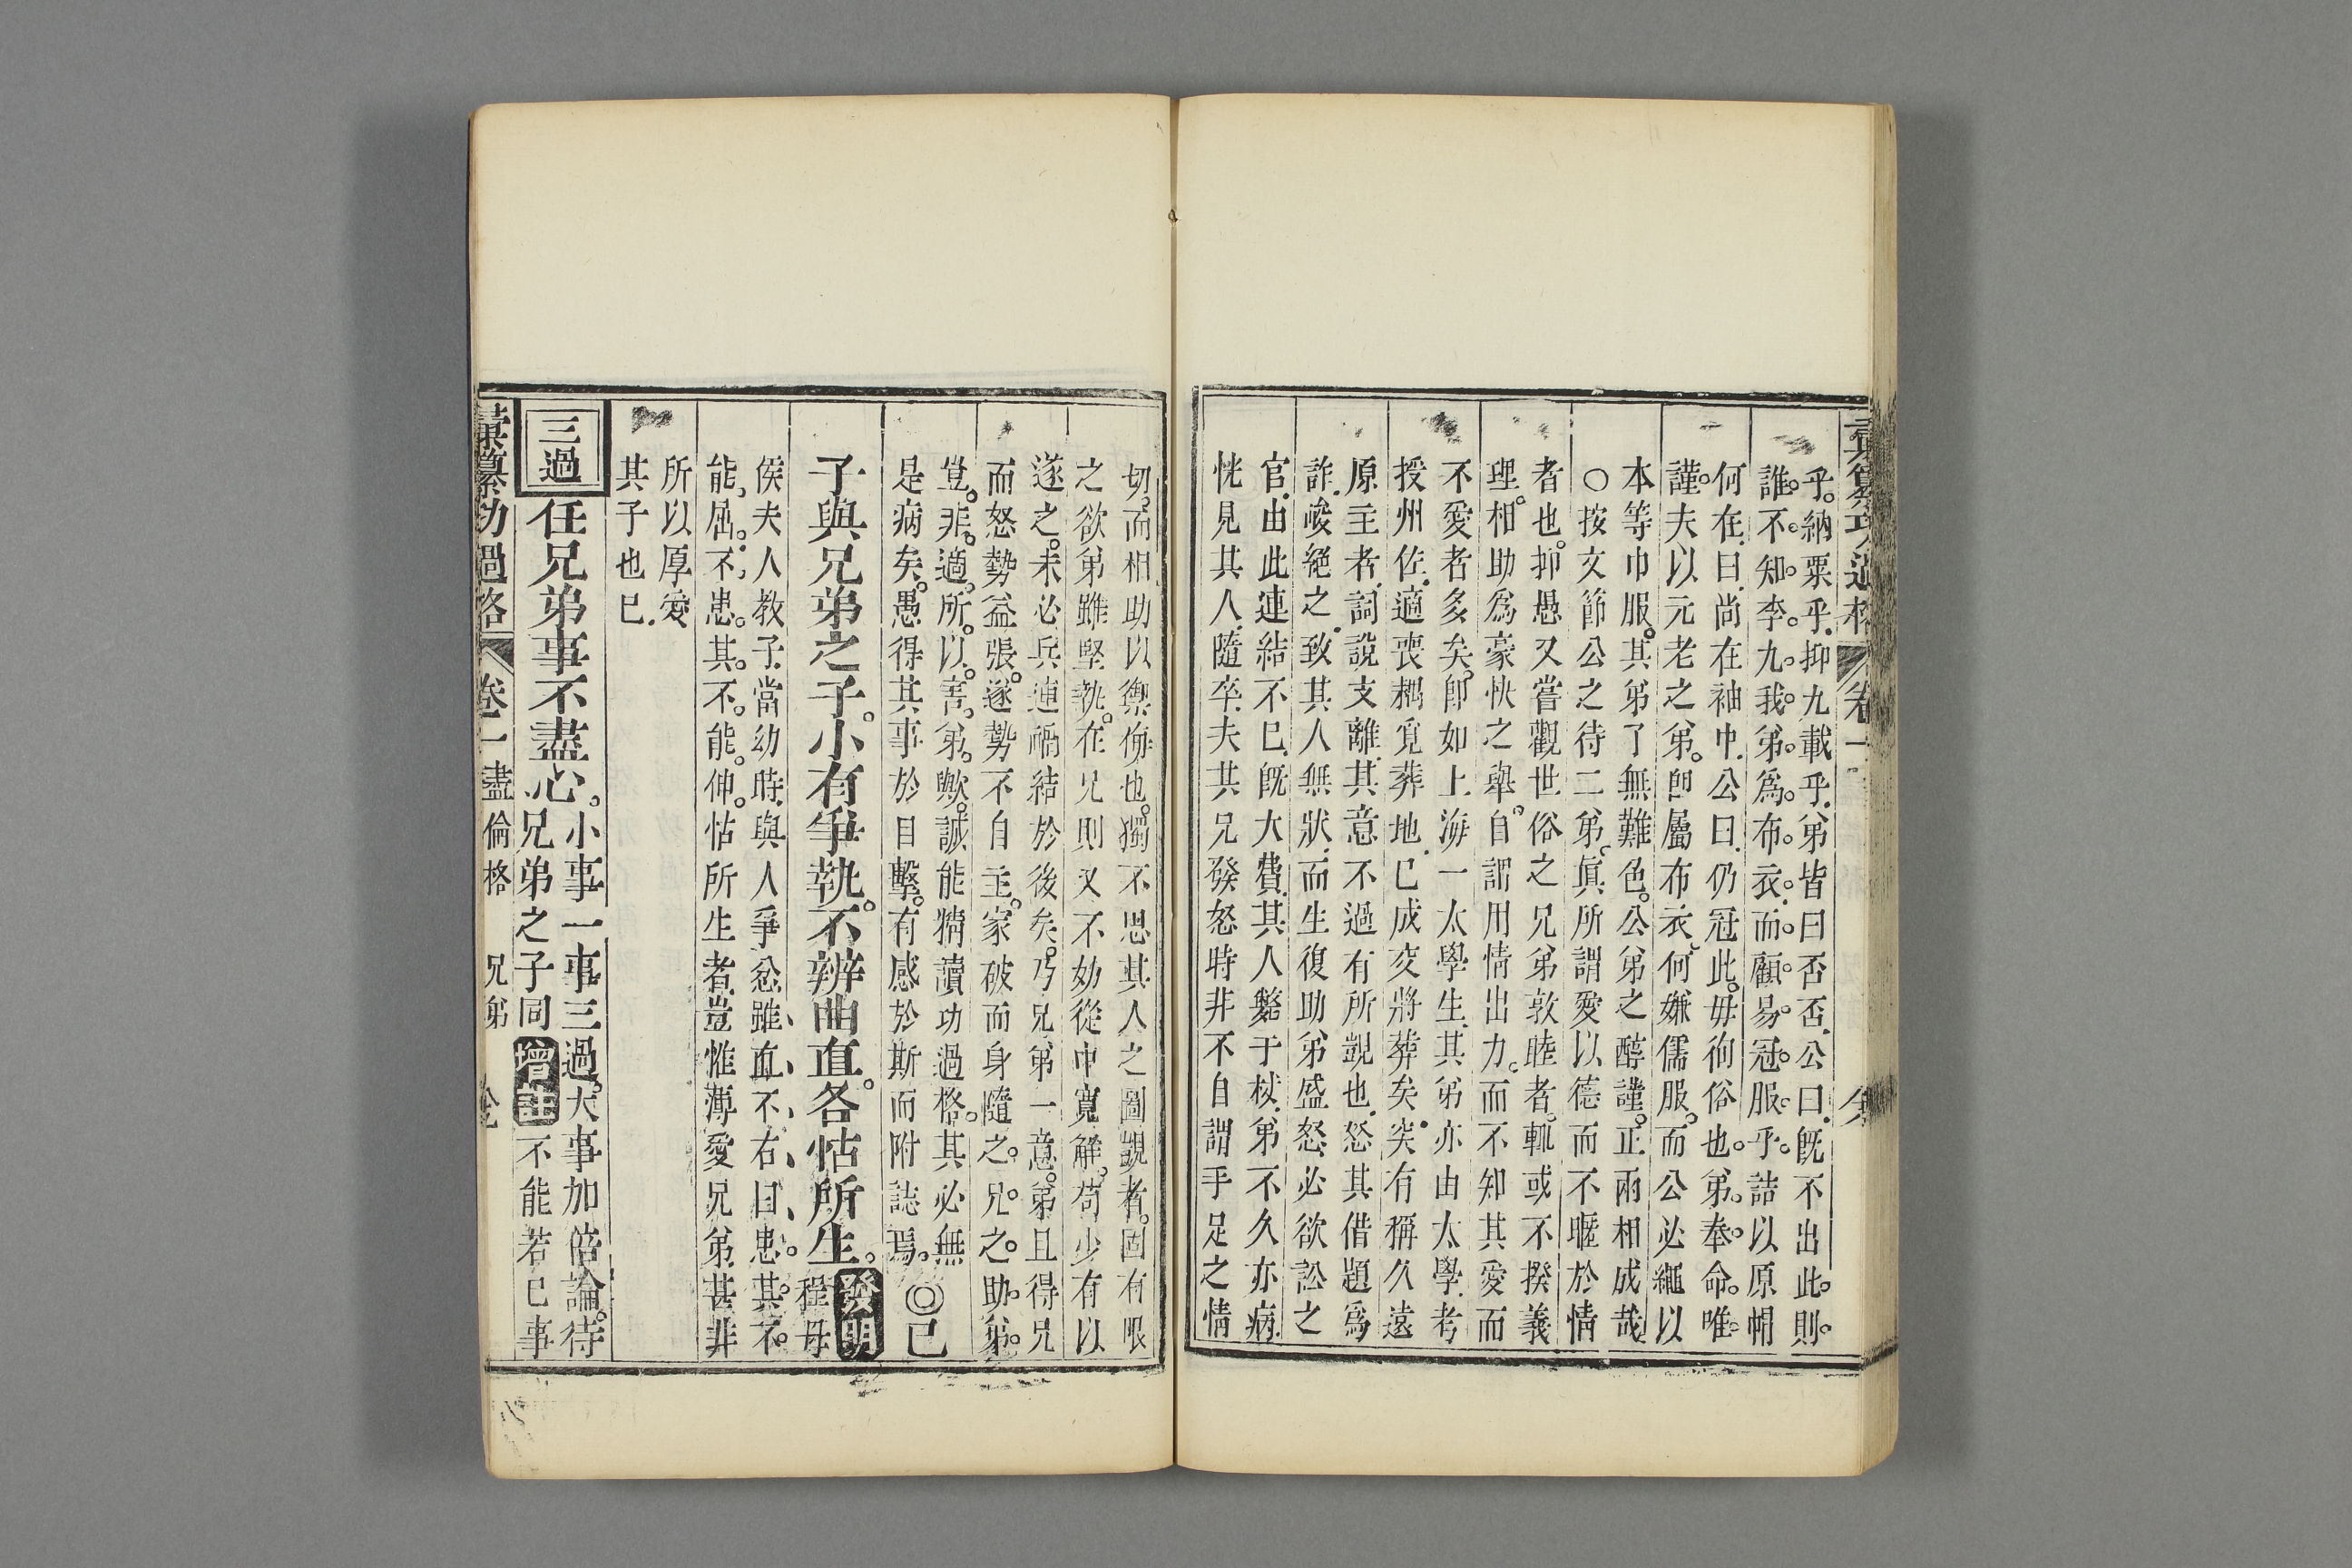 彙纂功過格 卷一
乎。納粟乎。抑九載乎。弟皆曰否否。公曰。旣不出此。則
誰。不知李九我弟爲布衣。而顧易冠服乎。詰以原帽
何在。曰。尚在袖中。公曰。仍冠此。毋徇俗也。弟奉命唯
謹。夫以元老之弟。卽屬布衣。何嫌儒服。而公必繩以
本等巾服。其弟了無難色。公弟之醇謹。正兩相成哉
○按文節公之待二弟。眞所謂愛以德而不暱於情
者也。抑愚又嘗觀世俗之兄弟敦睦者。輒或不揆義
理。相助爲豪快之舉。自謂用情出力。而不知其愛而
不愛者多矣。卽如上海一太學生。其弟亦由太學。考
授州佐。適喪耦覓葬地。已成交將葬矣。突有稱久遠
原主者。詞說支離。其意不過有所覬也。怒其借題爲
詐。峻絕之。致其人無狀。而生復助弟盛怒。必欲訟之
官。由此連結不已。旣大費。其人斃于杖。弟不久亦病
恍見其人隨卒。夫其兄發怒時。非不自謂手足之情
切。而相助以禦侮也。獨不思其人之圖覬者。固有限
之欲。弟雖堅執。在兄則又不妨從中寬解。苟少有以
遂之。未必兵連禍結於後矣。乃兄弟一意。弟且得兄
而怒勢益張。遂勢不自主。家破而身隨之。兄之助弟
豈非適所以害弟歟。誠能精讀功過格。其必無
是病矣。愚得其事於目擊。有感於斯而附誌焉。◎已
子與兄弟之子。小有爭執。不辨曲直。各怙所生。發明 程母
侯夫人教子。當幼時。與人爭忿。雖直不右。曰。患其不
能屈。不患其不能伸。怙所生者。豈惟薄愛兄弟。甚非
所以厚愛
其子也已。
三過 任兄弟事不盡心。小事一事三過。大事加倍論。待
兄弟之子同 增註 不能若已事
彙纂功過格 卷一 盡倫格 兄弟